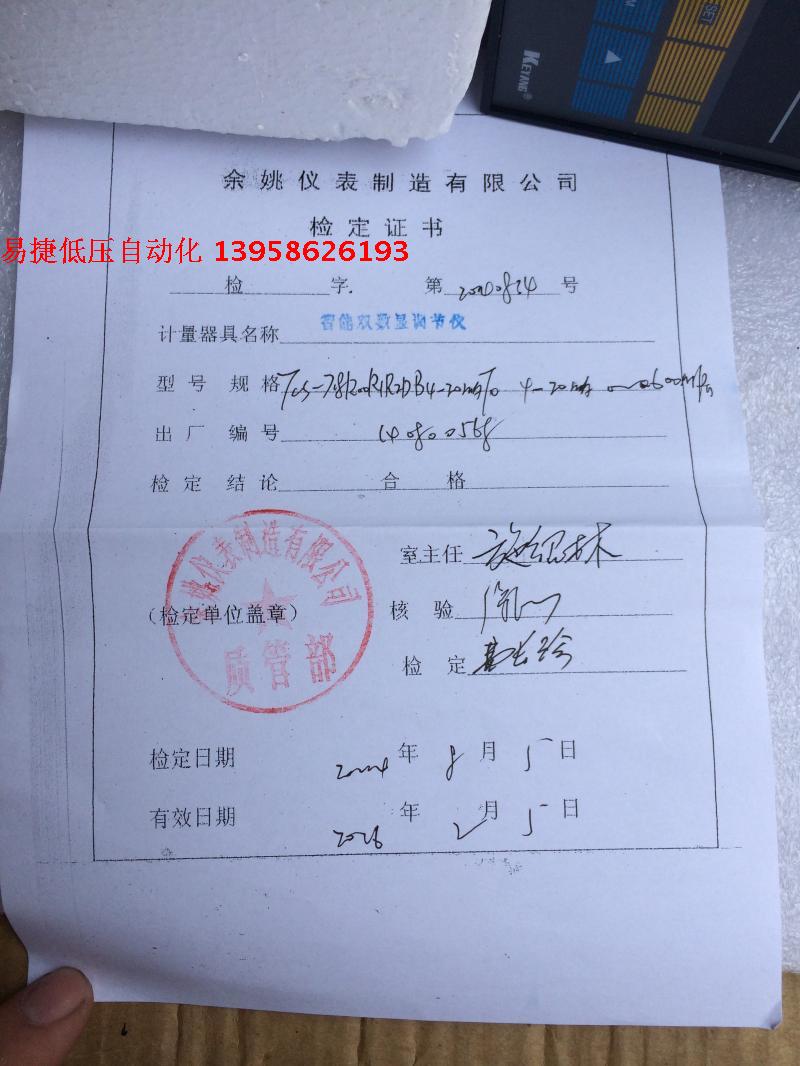 SET
KEYANG®
余姚仪表制造有限公司
检定证书
易捷低压自动化 13958626193
检 字 第 号
计量器具名称 智能双数显调节仪
型号 规格 4-20mA
出厂 编号 140800568
检定 结论 合格
室主任
(检定单位盖章) 核 验
仪表制造有限公司
质管部
检 定
检定日期 年 8 月 5 日
有效日期 年 2 月 5 日